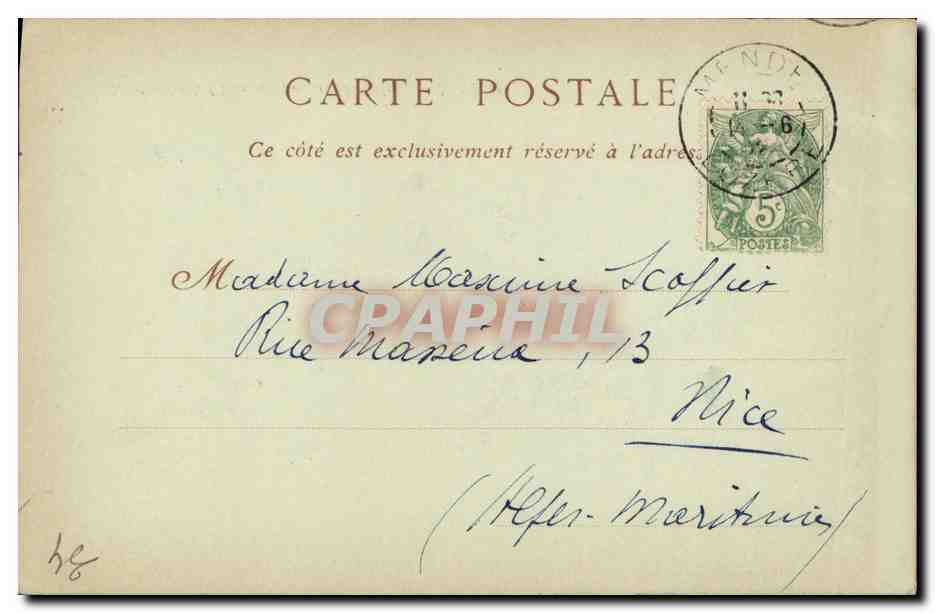 CARTE POSTALE
Ce côté est exclusivement réservé à l'adress
MENDE
5c
POSTES
Madame Maxime Scoffier
CPRAPHIL
Rue Masséna, 13
Nice
(Alpes-Maritimes)